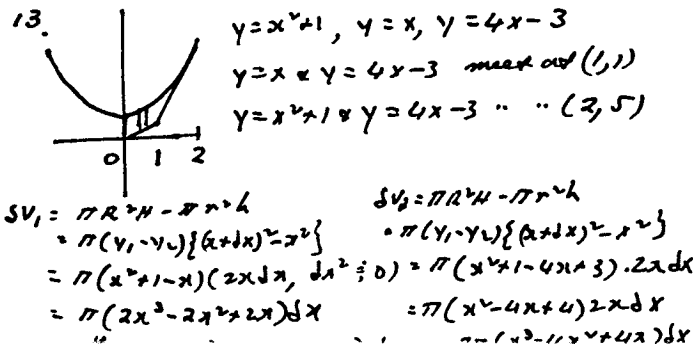 13.
y = x²+1 , y = x, y = 4x - 3
y = x & y = 4x - 3 meet at (1,1)
y = x²+1 & y = 4x - 3 " " (2,5)
0 1 2
δV₁ = πR²H - πr²h
= π(y₁-y₂){(x+dx)²-x²}
= π(x²+1-x)(2xdx, dx² ≑ 0)
= π(2x³-2x²+2x)dx
δV₂ = πR²H - πr²h
= π(y₁-y₂){(x+dx)²-x²}
= π(x²+1-4x+3).2xdx
= π(x²-4x+4)2xdx
(x³-4x²+4x)dx